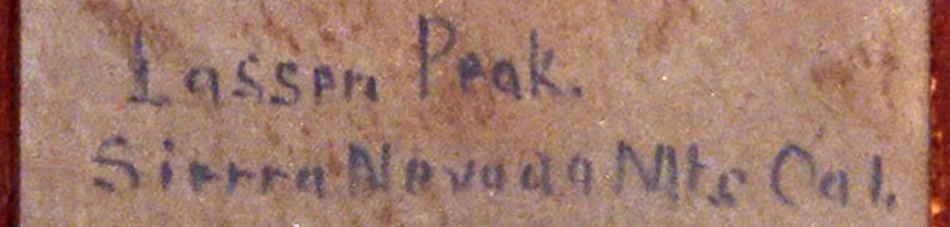 Lassen Peak.
Sierra Nevada Mts Cal.